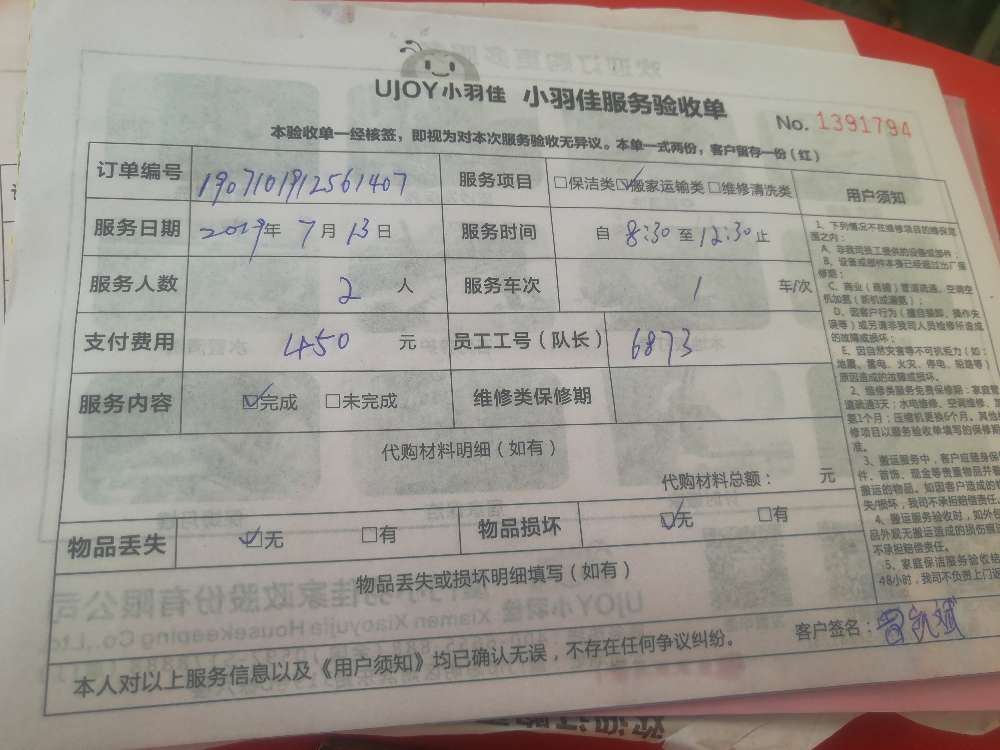 UJOY小羽佳 小羽佳服务验收单
No. 1391794
本验收单一经核签，即视为对本次服务验收无异议。本单一式两份，客户留存一份（红）
订单编号 1907101912561407 服务项目 □保洁类 ☑搬家运输类 □维修清洗类
服务日期 2019年7月13日 服务时间 自 8:30 至 12:30 止
服务人数 2 人 服务车次 1 车/次
支付费用 450 元 员工工号（队长） 6873
服务内容 ☑完成 □未完成 维修类保修期
代购材料明细（如有）
代购材料总额： 元
物品丢失 ☑无 □有 物品损坏 ☑无 □有
物品丢失或损坏明细填写（如有）
本人对以上服务信息以及《用户须知》均已确认无误，不存在任何争议纠纷。
客户签名：
用户须知
1、下列情况不在维修项目的维保范
围之内：
A、非我司员工提供的设备或部件
B、设备或部件本身已经超过出厂保
修期；
C、商业（商接）管道疏通、空调空
机加氨（新机或漏氨）；
D、因客户行为（擅自装卸、操作失
误等）或另请非我司人员检修所造成
的故障或损坏；
E、因自然灾害等不可抗拒力（如：
地震、雷电、火灾、停电、短路等）
原因造成的故障或损坏。
2、维修类服务免费保修期：家庭管
道疏通3天；水电维修、空调维修、加
氨1个月；压缩机更换6个月。其他
修项目以服务验收单填写的保修期
准。
3、搬运服务中，客户应随身保
件、首饰、现金等贵重物品并
搬运的物品。如因客户造成的
失/损坏，我司不承担赔偿责任。
4、搬运服务验收时，如外包
品外观无搬运造成的损伤痕
不承担赔偿责任。
5、家庭保洁服务验收
48小时，我司不负责上门返